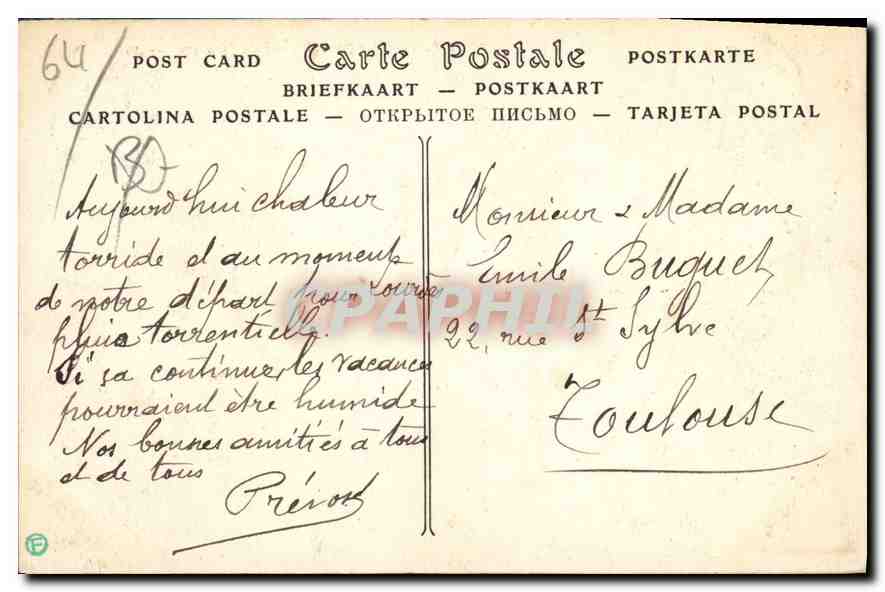 64
POST CARD Carte Postale POSTKARTE
BRIEFKAART — POSTKAART
CARTOLINA POSTALE — ОТКРЫТОЕ ПИСЬМО — TARJETA POSTAL
Aujourd'hui chaleur
torride et au moment
de notre départ pour Lourdes
pluie torrentielle.
Si sa continue, les vacances
pourraient être humide
Nos bonnes amitiés à tous
et de tous
Prévost
Monsieur & Madame
Emile Buguet
22, rue St Sylve
Toulouse
CPAPHIL
F